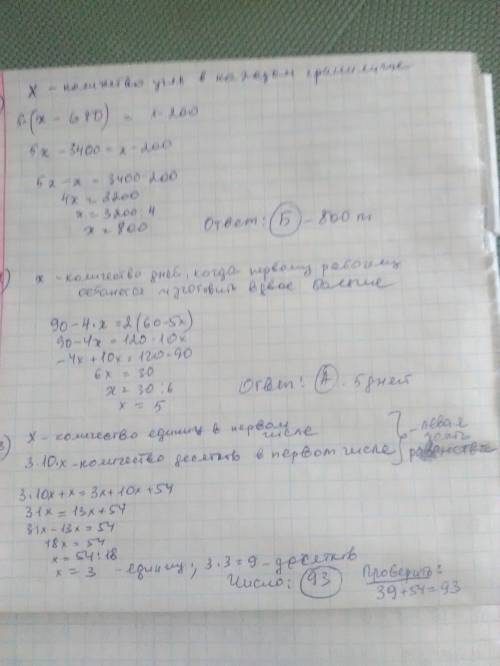 x - количество угля в каждом хранилище
5(x - 680) = x - 200
5x - 3400 = x - 200
5x - x = 3400-200
4x = 3200
x = 3200:4
x = 800
Ответ: Б - 800 т
x - количество дней, когда первому рабочему
останется изготовить вдвое больше
90-4·x = 2(60-5x)
90-4x = 120-10x
-4x+10x = 120-90
6x = 30
x = 30:6
x = 5
Ответ: А. 5 дней
3) x - количество единиц в первом
числе
3·10·x - количество десятков в первом числе
- левая
часть
равенства
3·10x+x = 3x+10x+54
31x = 13x+54
31x-13x = 54
18x = 54
x = 54:18
x = 3 - единиц; 3·3=9 - десятков
Число: 93
Проверить:
39+54=93